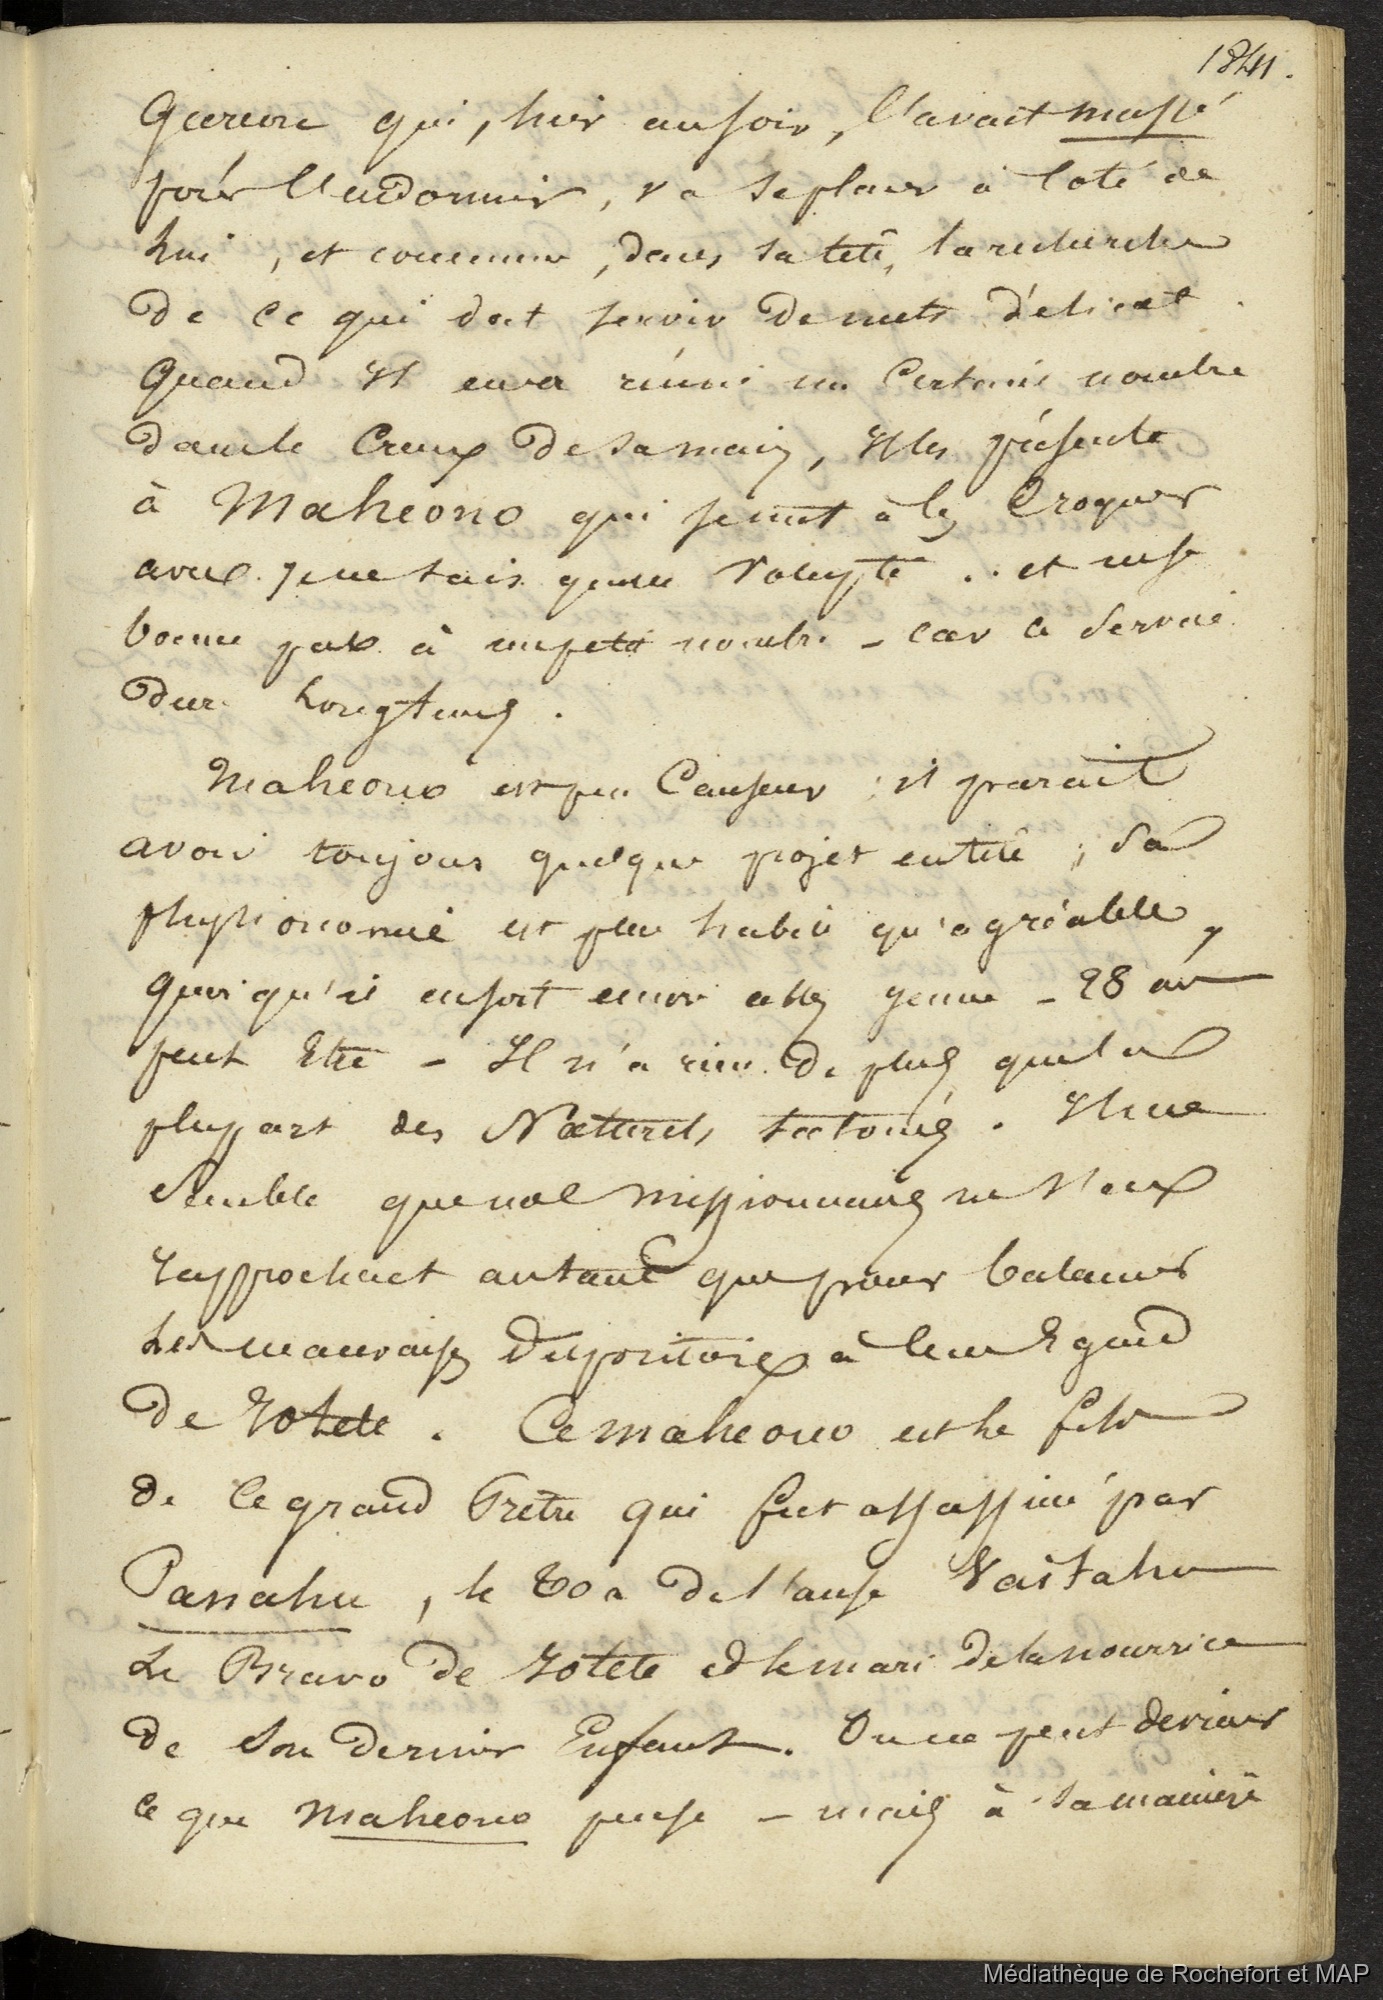 1841.
Garcon qui, hier au soir, l'avait massé
pour l'endormir, va se placer à coté de
lui, et commence, dans sa tête, la recherche
de ce qui doit servir de mets délicat.
Quand Il en a réuni un certain nombre
dans le creux de sa main, Il les présente
à Maheono qui se met à les croquer
avec je ne sais quelle volupté .. et ne se
borne pas à un petit nombre - car ce service
dure longtems.
Maheono est peu causeur ; il parait
avoir toujours quelque projet en tête ; Sa
physionomie est peu habile qu'agréable,
quoiqu'il en soit encore assez jeune - 28 ans
peut Etre - Il n'a rien de plus que la
plupart des Naturels tatoués. Il me
semble que nos missionnaires ne s'en
rapprochent autant que pour balancer
les mauvaises dispositions à leur Egard
de Yotete. Ce maheono est le fils
de ce grand Prêtre qui fut assassiné par
Panahu, le Toa de l'anse Vaitahu
Le Bravo de Yotete et le mari de la nourrice
de Son dernier Enfant. On ne peut deviner
ce que Maheono pense - mais à sa manière
Médiathèque de Rochefort et MAP